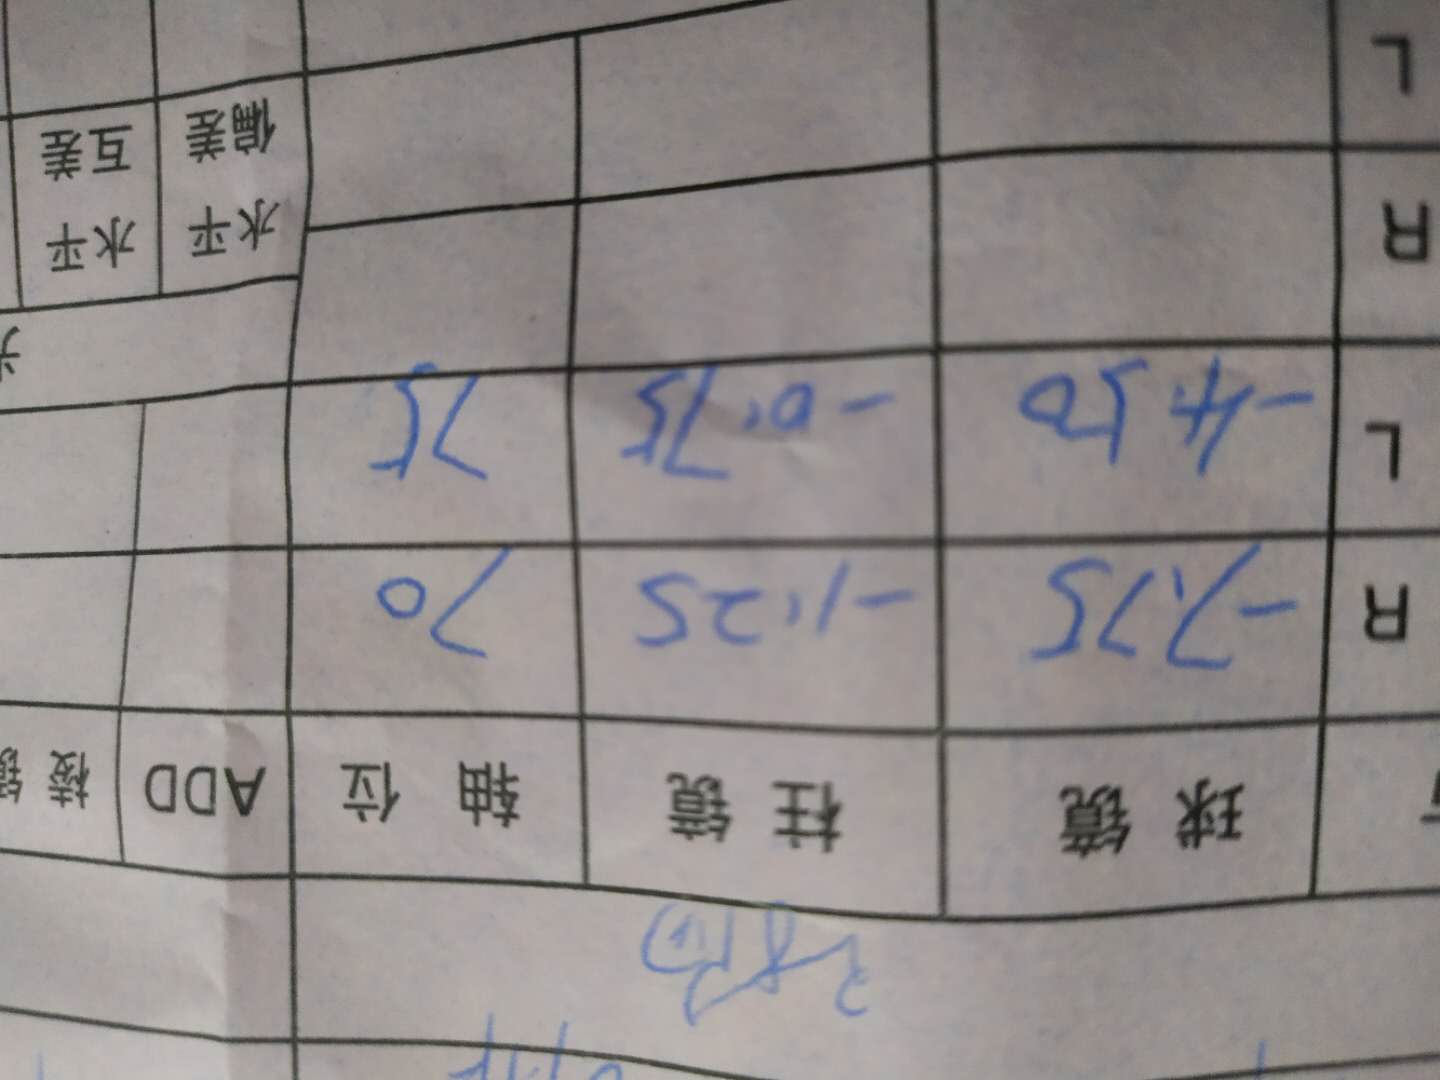 球镜 柱镜 轴位 ADD 棱镜
R -7.75 -1.25 70
L -4.50 -0.75 75
R
L
水平偏差 水平互差